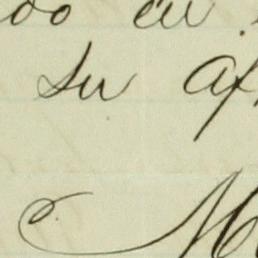 do en
su af
M